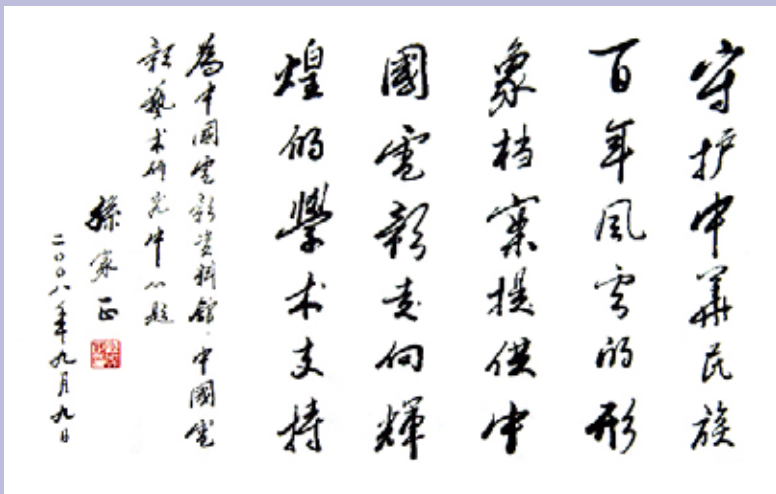 守护中華民族
百年风雲的形
象档案提供中
國電影走向輝
煌的學术支持
為中國電影资料館·中國電
影藝术研究中心題
孫家正
二〇〇八年九月九日